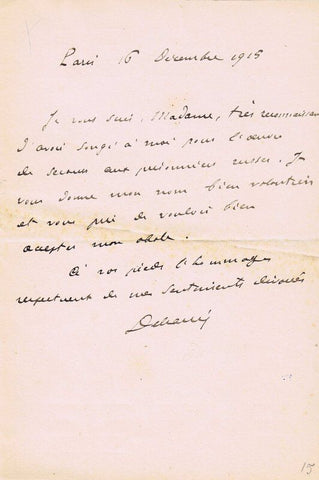 Paris 16 Décembre 1915
Je vous suis, Madame, très reconnaissan
d'avoir songé à moi pour l'œuvre
de secours aux prisonniers russes. Je
vous donne mon nom bien volontiers
et vous prie de vouloir bien
accepter mon obole.
à vos pieds l'hommage
respectueux de mes sentiments dévoués
15